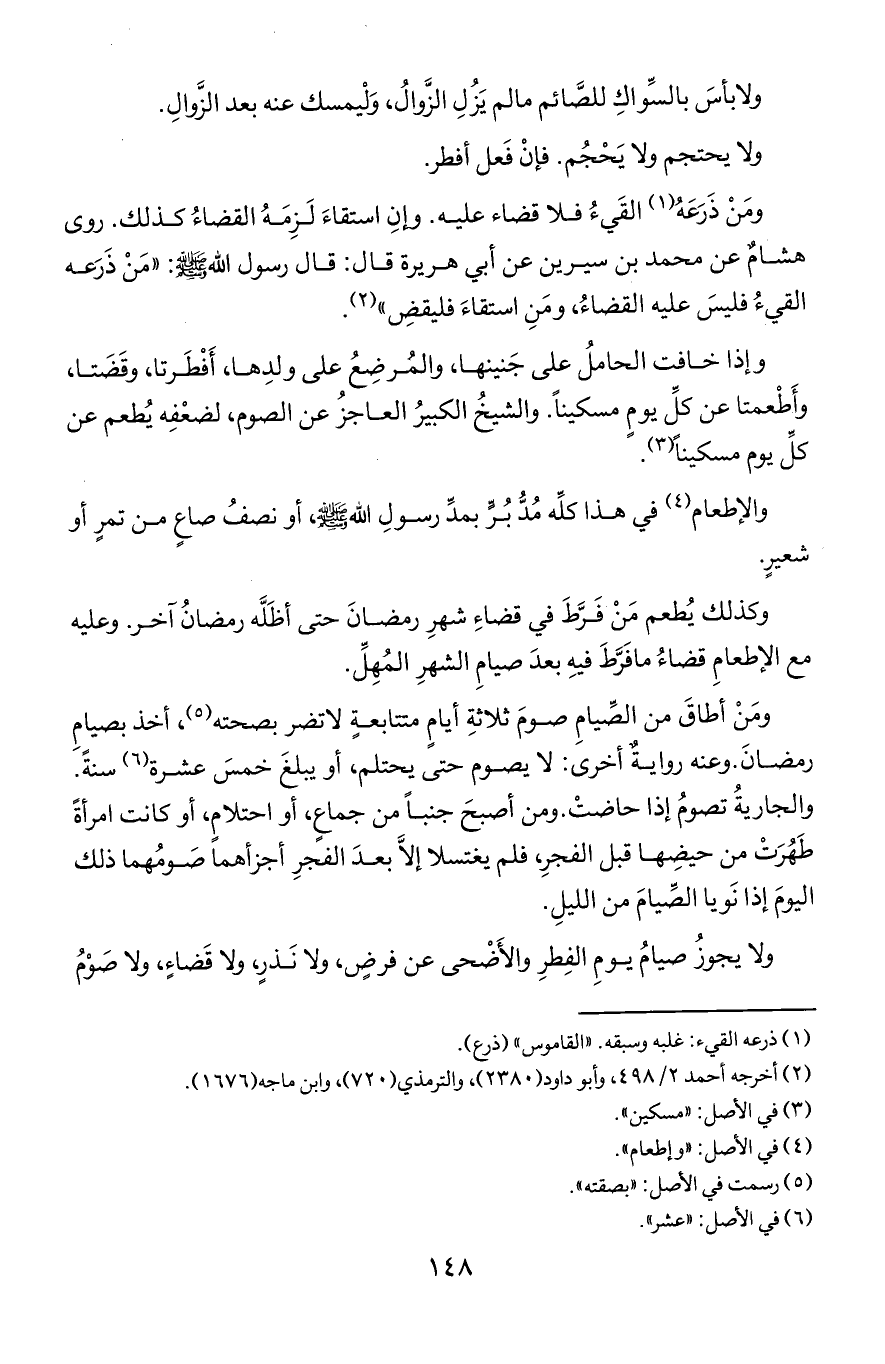 ولابأسَ بالسِّواكِ للصَّائم مالم يَزُلِ الزَّوالُ، وَلْيمسك عنه بعد الزَّوالِ.
ولا يحتجم ولا يَحْجُم. فإنْ فَعل أفطر.
ومَنْ ذَرَعَهُ(١) القَيءُ فـلا قضاء عليـه. وإنِ استقاءَ لَـزِمَـهُ القضاءُ كـذلك. روى
هشـامٌ عن محمد بن سيـرين عن أبي هـريرة قـال: قـال رسول اللهﷺ: «مَنْ ذَرَعـه
القيءُ فليسَ عليه القضاءُ، ومَنِ استقاءَ فليقضِ»(٢).
وإذا خـافت الحاملُ على جَنينهـا، والمُـرضِعُ على ولدِهـا، أَفْطَـرتا، وقَضَتـا،
وأَطْعمتا عن كلِّ يومٍ مسكيناً. والشيخُ الكبيرُ العـاجزُ عن الصوم، لضعْفِه يُطعم عن
كلِّ يوم مسكيناً(٣).
والإطعام(٤) في هـذا كلِّه مُدُّ بُـرٍّ بمدِّ رسـولِ اللهﷺ، أو نصفُ صاعٍ مـن تمرٍ أو
شعيرٍ.
وكذلك يُطعم مَنْ فَـرَّطَ في قضاءِ شهرِ رمضـانَ حتى أظَلَّه رمضانُ آخـر. وعليه
مع الإطعامِ قضاءُ مافَرَّطَ فيهِ بعدَ صيامِ الشهرِ المُهِلِّ.
ومَنْ أطاقَ من الصِّيامِ صـومَ ثلاثةِ أيامٍ متتابعـةٍ لاتضر بصحته(٥)، أخذ بصيامِ
رمضـانَ.وعنه روايـةٌ أخرى: لا يصـوم حتى يحتلم، أو يبلغَ خمسَ عشـرة(٦) سنةً.
والجاريةُ تصومُ إذا حاضتْ.ومن أصبحَ جنبـاً من جماعٍ، أو احتلامٍ، أو كانت امرأةً
طَهُرَتْ من حيضِهـا قبل الفجرِ، فلم يغتسلا إلاَّ بعـدَ الفجرِ أجزأهماَ صَـومُهما ذلك
اليومَ إذا نَويا الصِّيامَ من الليلِ.
ولا يجوزُ صيامُ يـومِ الفِطرِ والأَضْحى عن فرضٍ، ولا نَـذرٍ، ولا قَضاءٍ، ولا صَوْمُ
(١) ذرعه القيء: غلبه وسبقه. «القاموس» (ذرع).
(٢) أخرجه أحمد ٢/ ٤٩٨، وأبو داود(٢٣٨٠)، والترمذي(٧٢٠)، وابن ماجه(١٦٧٦).
(٣) في الأصل: «مسكين».
(٤) في الأصل: «وإطعام».
(٥) رسمت في الأصل: «بصقته».
(٦) في الأصل: «عشر».
١٤٨